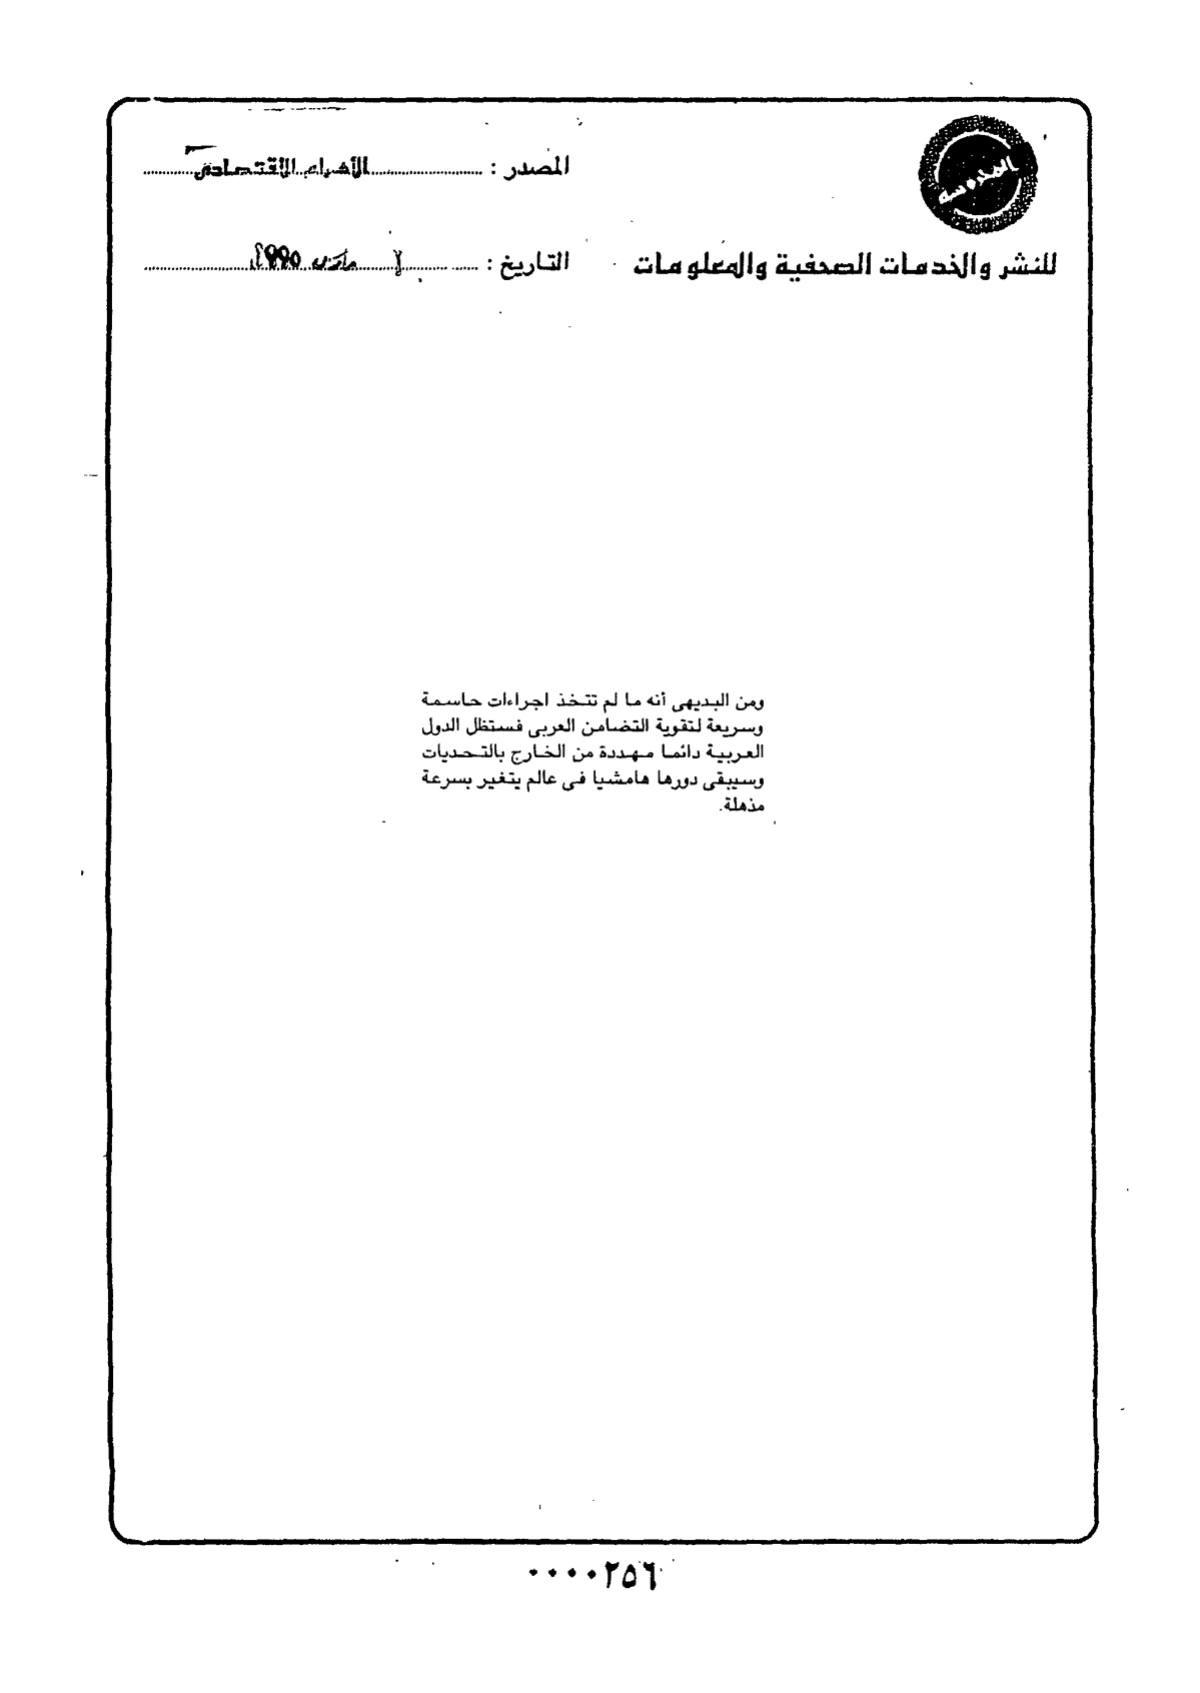 المصدر : الأهرام الاقتصادى
للنشر والخدمات الصحفية والمعلومات
التاريخ : مارس
ومن البديهى أنه ما لم تتخذ اجراءات حاسمة
وسريعة لتقوية التضامن العربى فستظل الدول
العربية دائما مهددة من الخارج بالتحديات
وسيبقى دورها هامشيا فى عالم يتغير بسرعة
مذهلة.
٠٠٠٠٢٥٦